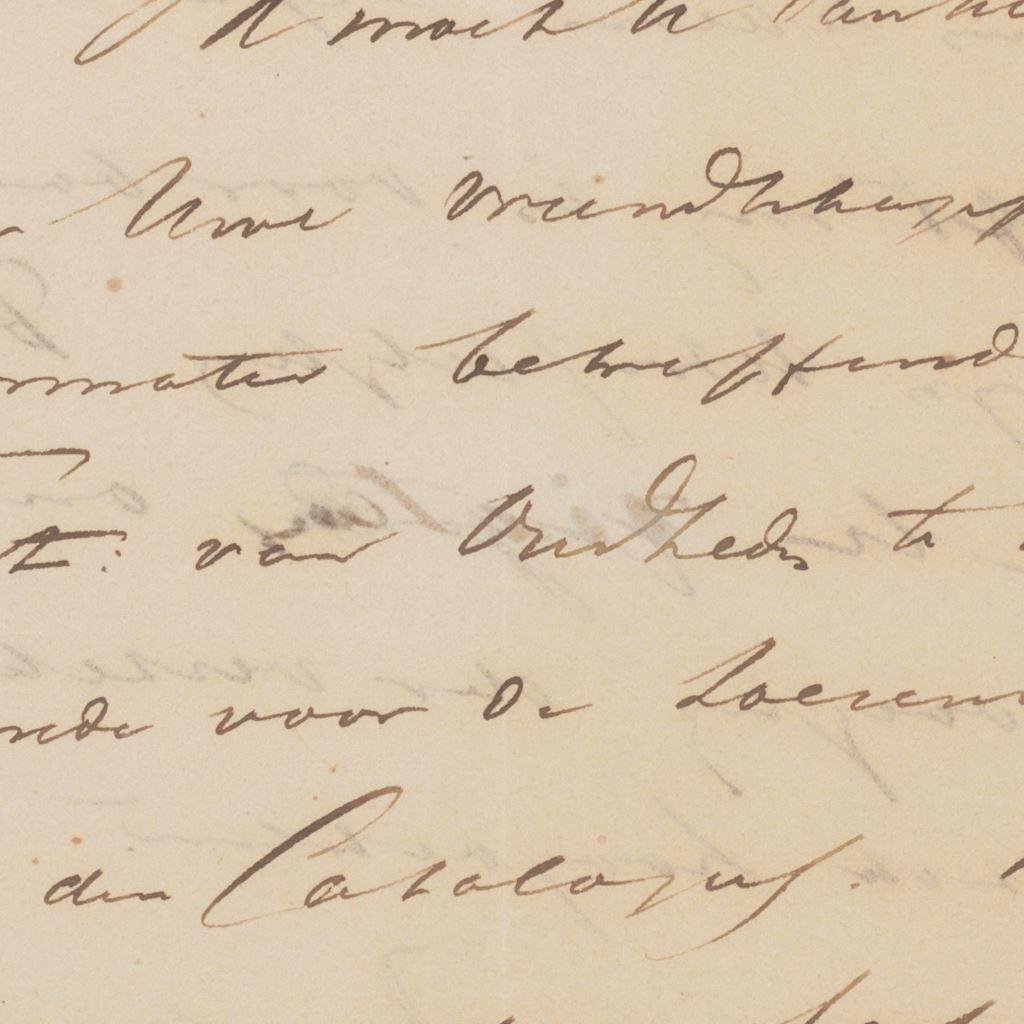 Uwe vriendschapp
rmatie betreffend
t: van Oudhed: te
rede voor de toezen
den Catalogus.